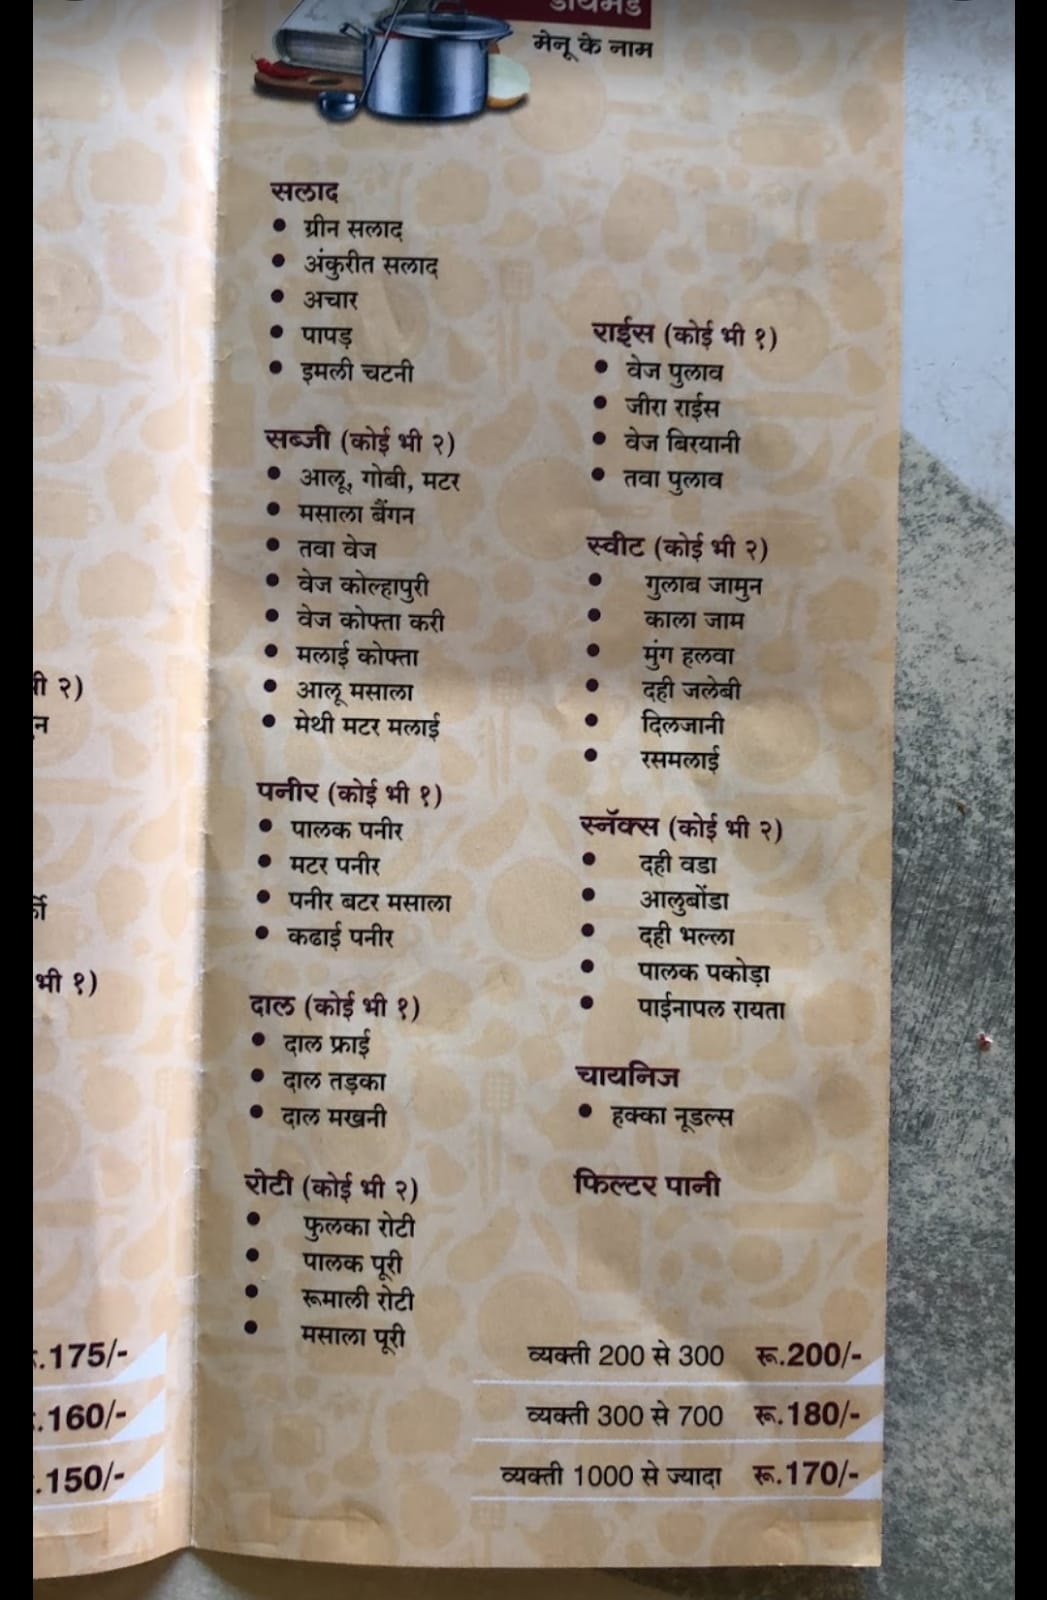 डायमंड
मेनू के नाम
सलाद
• ग्रीन सलाद
• अंकुरीत सलाद
• अचार
• पापड़
• इमली चटनी
सब्जी (कोई भी २)
• आलू, गोबी, मटर
• मसाला बैंगन
• तवा वेज
• वेज कोल्हापुरी
• वेज कोफ्ता करी
• मलाई कोफ्ता
• आलू मसाला
• मेथी मटर मलाई
पनीर (कोई भी १)
• पालक पनीर
• मटर पनीर
• पनीर बटर मसाला
• कढाई पनीर
दाल (कोई भी १)
• दाल फ्राई
• दाल तड़का
• दाल मखनी
रोटी (कोई भी २)
• फुलका रोटी
• पालक पूरी
• रूमाली रोटी
• मसाला पूरी
राईस (कोई भी १)
• वेज पुलाव
• जीरा राईस
• वेज बिरयानी
• तवा पुलाव
स्वीट (कोई भी २)
• गुलाब जामुन
• काला जाम
• मुंग हलवा
• दही जलेबी
• दिलजानी
• रसमलाई
स्नॅक्स (कोई भी २)
• दही वडा
• आलुबोंडा
• दही भल्ला
• पालक पकोड़ा
• पाईनापल रायता
चायनिज
• हक्का नूडल्स
फिल्टर पानी
व्यक्ती 200 से 300 रू.200/-
व्यक्ती 300 से 700 रू.180/-
व्यक्ती 1000 से ज्यादा रू.170/-
२)
भी १)
.175/-
.160/-
.150/-